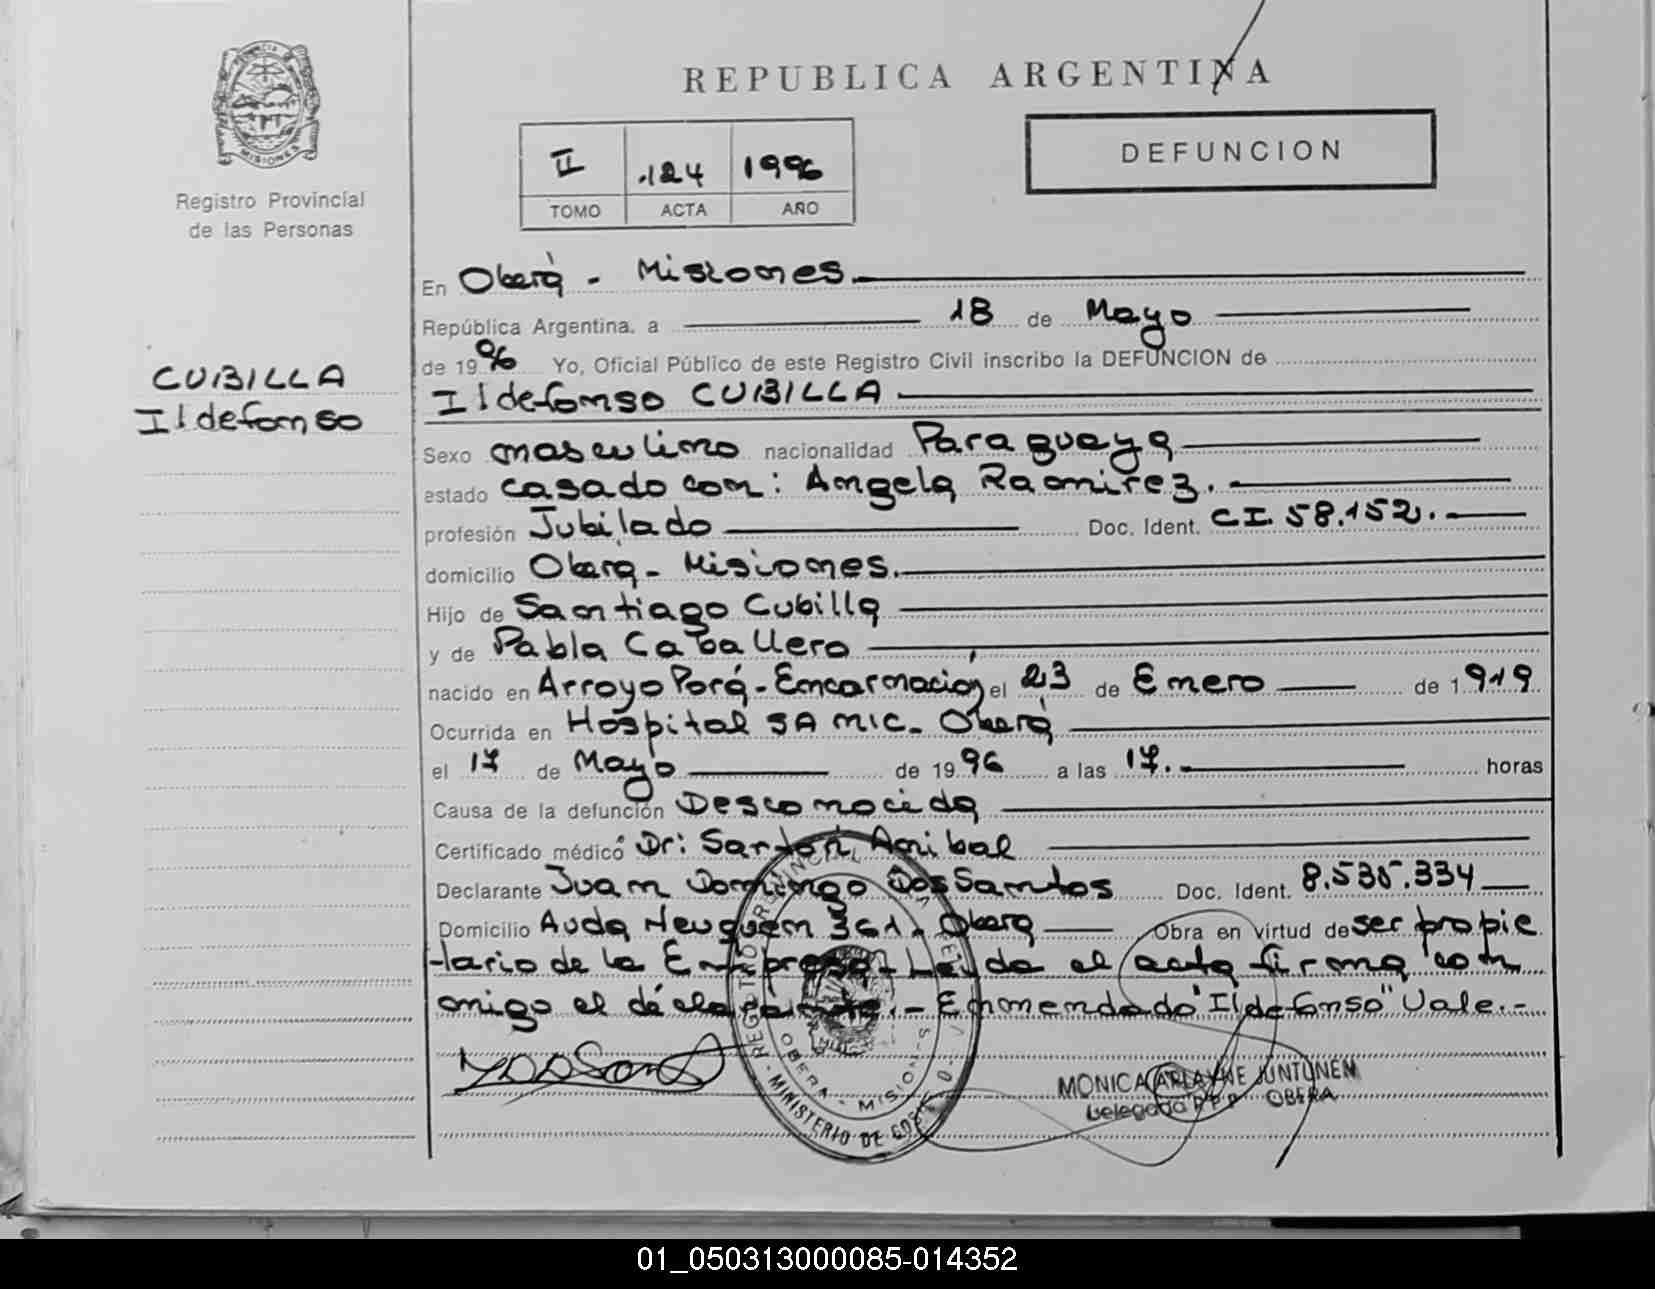 REPUBLICA ARGENTINA
MISIONES
Registro Provincial
de las Personas
II .124 1996
TOMO ACTA AÑO
DEFUNCION
CUBILLA
Ildefonso
En Oberá - Misiones.
República Argentina, a 18 de Mayo
de 1996 Yo, Oficial Público de este Registro Civil inscribo la DEFUNCION de
Ildefonso CUBILLA
Sexo masculino nacionalidad Paraguaya
estado casado con: Angela Ramirez.
profesión Jubilado Doc. Ident. CI. 58.152.
domicilio Oberá - Misiones.
Hijo de Santiago Cubilla
y de Pabla Caballero
nacido en Arroyo Porá - Encarnación, el 23 de Enero de 1919
Ocurrida en Hospital SAMIC. Oberá
el 17 de Mayo de 1996 a las 17. horas
Causa de la defunción Desconocida
Certificado médico Dr: Anibal
Declarante Juan Domingo Dos Santos Doc. Ident. 8.535.334
Domicilio Avda Neuquen 361. Oberá Obra en virtud de ser propie
tario de la Empresa - Leida el acta firma con
migo el declarante. - Enmendado "Ildefonso" Vale. -
OBERA - MISIONES
MINISTERIO DE
MONICA ARLAYNE JUNTUNEN
Delegada R.P.P. OBERA
01_050313000085-014352